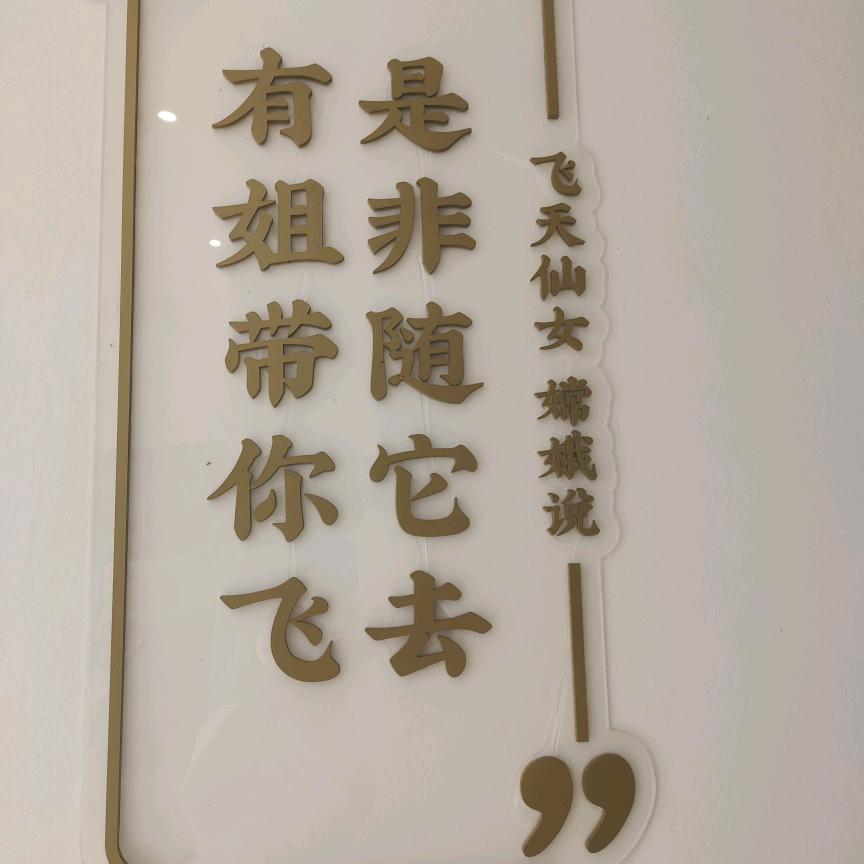 飞天仙女 嫦娥说
是非随它去
有姐带你飞